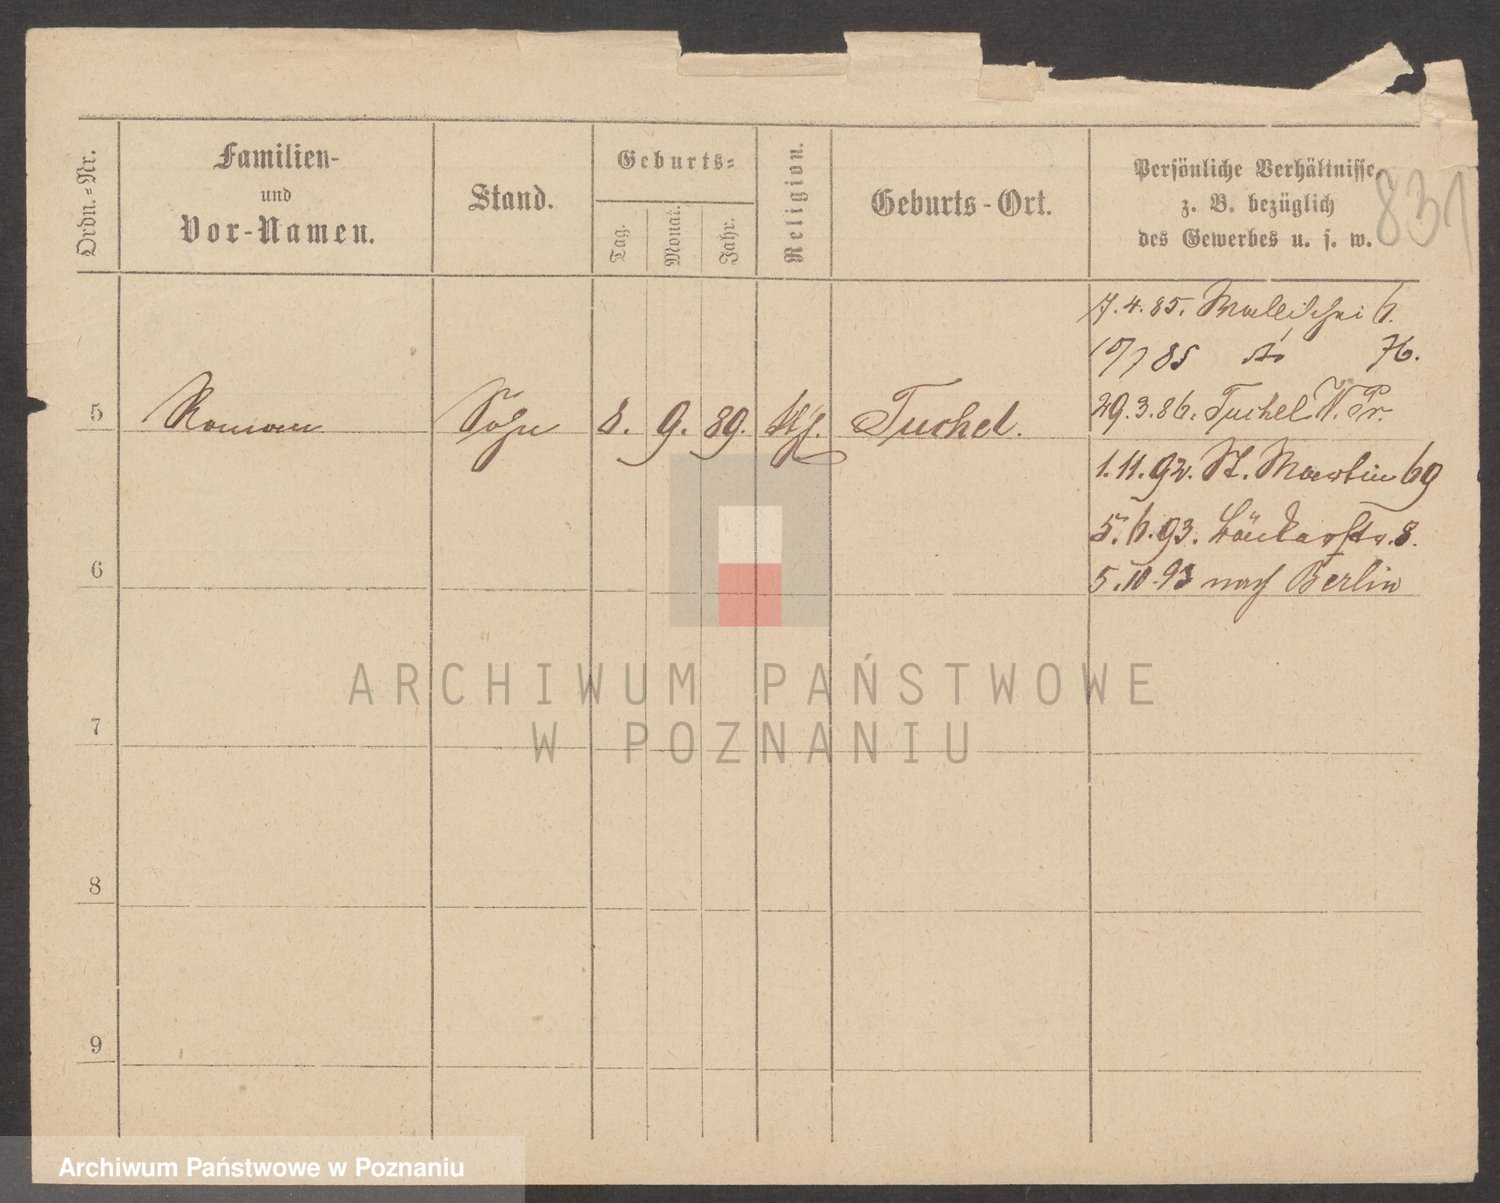 831
Ordn.=Nr.
Familien-
und
Vor-Namen.
Stand.
Geburts=
Tag.
Monat.
Jahr.
Religion.
Geburts-Ort.
Persönliche Verhältnisse,
z. B. bezüglich
des Gewerbes u. s. w.
7.4.85. Wallischei 6.
10/7 85 do 76.
29.3.86. Tuchel W. Pr.
5 Roman Sohn 8. 9. 89. Tuchel.
1.11.92. St. Martin 69
5.6.93. Bäckerstr. 8.
6
5.10.93 nach Berlin
7
8
9
ARCHIWUM PAŃSTWOWE
W POZNANIU
Archiwum Państwowe w Poznaniu